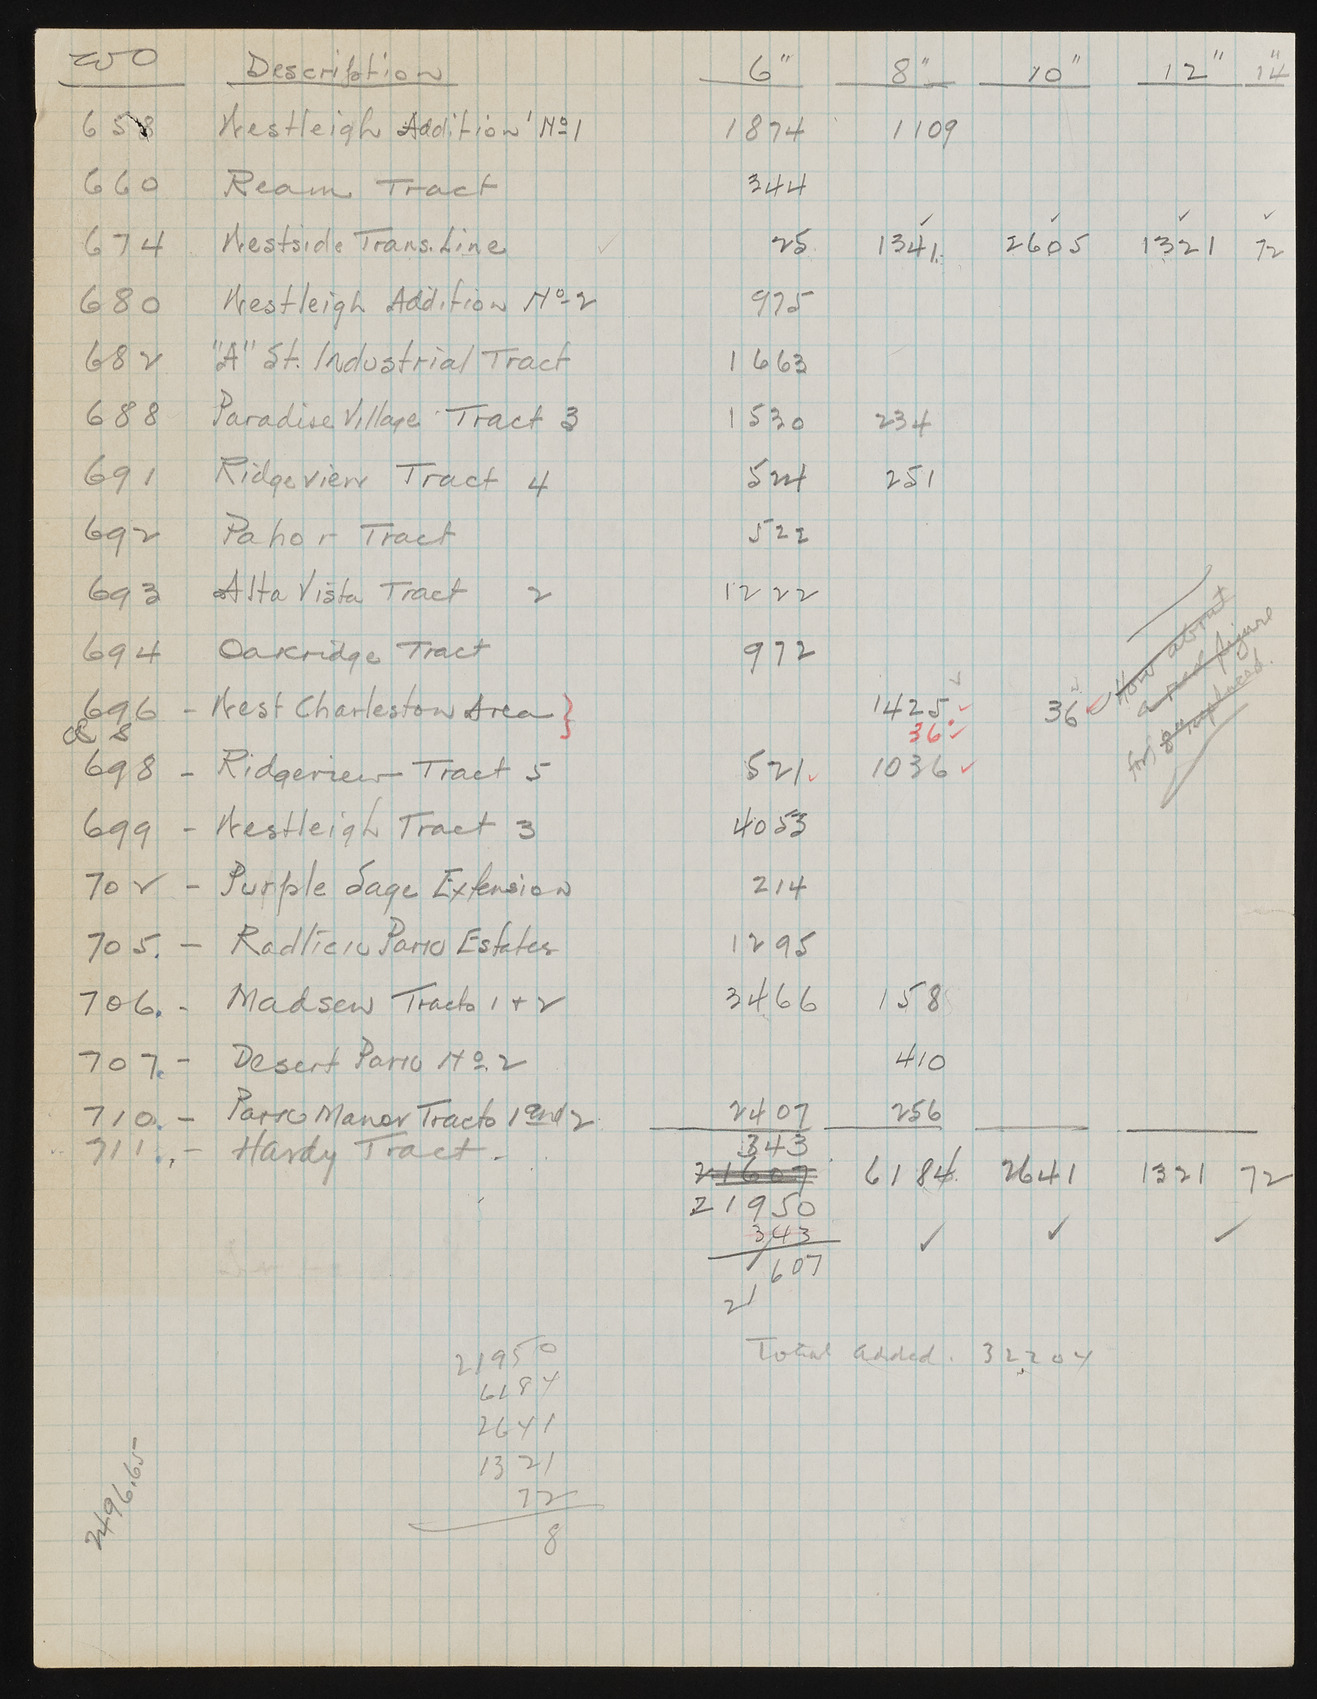 WO Description 6" 8" 10" 12" 14"
658 Westleigh Addition No 1 1874 1109
660 Ream Tract 344
674 Westside Trans. Line ✓ 25 1341 ✓ 2605 ✓ 1321 ✓ 72 ✓
680 Westleigh Addition No 2 975
682 "A" St. Industrial Tract 1663
688 Paradise Village Tract 3 1530 234
691 Ridgeview Tract 4 524 251
692 Pahor Tract 522
693 Alta Vista Tract 2 1222
694 Oakridge Tract 972
How about
a red figure
for 8" replaced.
696 - West Charleston Area } 1425 ✓ 36 ✓
36 ✓
698 - Ridgeview Tract 5 521 ✓ 1036 ✓
699 - Westleigh Tract 3 4053
702 - Purple Sage Extension 214
705. - Radlick Park Estates 1295
706. - Madsen Tracts 1 + 2 3466 158
707. - Desert Park No. 2 410
710. - Park Manor Tracts 1 and 2 2407 256
711. - Hardy Tract - 343
21607 6184 2641 1321 72
21950
343 ✓ ✓ ✓
21607
Total added. 32204
21950
6184
2641
1321
72
8
2496.65